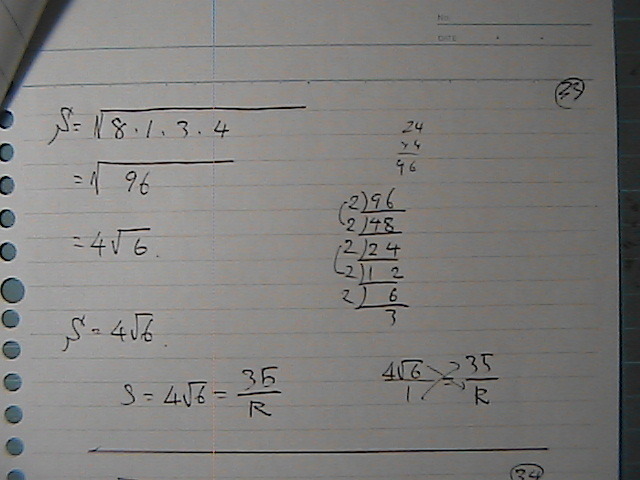 No.
DATE
29
S = √8・1・3・4
= √96
= 4√6.
24
×4
96
2)96
2)48
2)24
2)12
2)6
3
S = 4√6.
S = 4√6 = 35/R
4√6/1 = 35/R
34